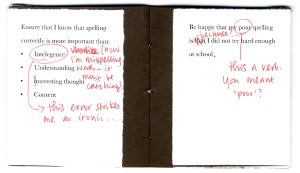 Ensure that I know that spelling
correctly is more important than:
• Intelegence
• Understanding
• Interesting thought
• Content
(now
I'm mispelling
words – it
must be
catching!)
→ this error strikes
me as ironic...
Be happy that my poor spelling
is that I did not try hard enough
at school,
because?
this a verb.
You meant
'poor'?